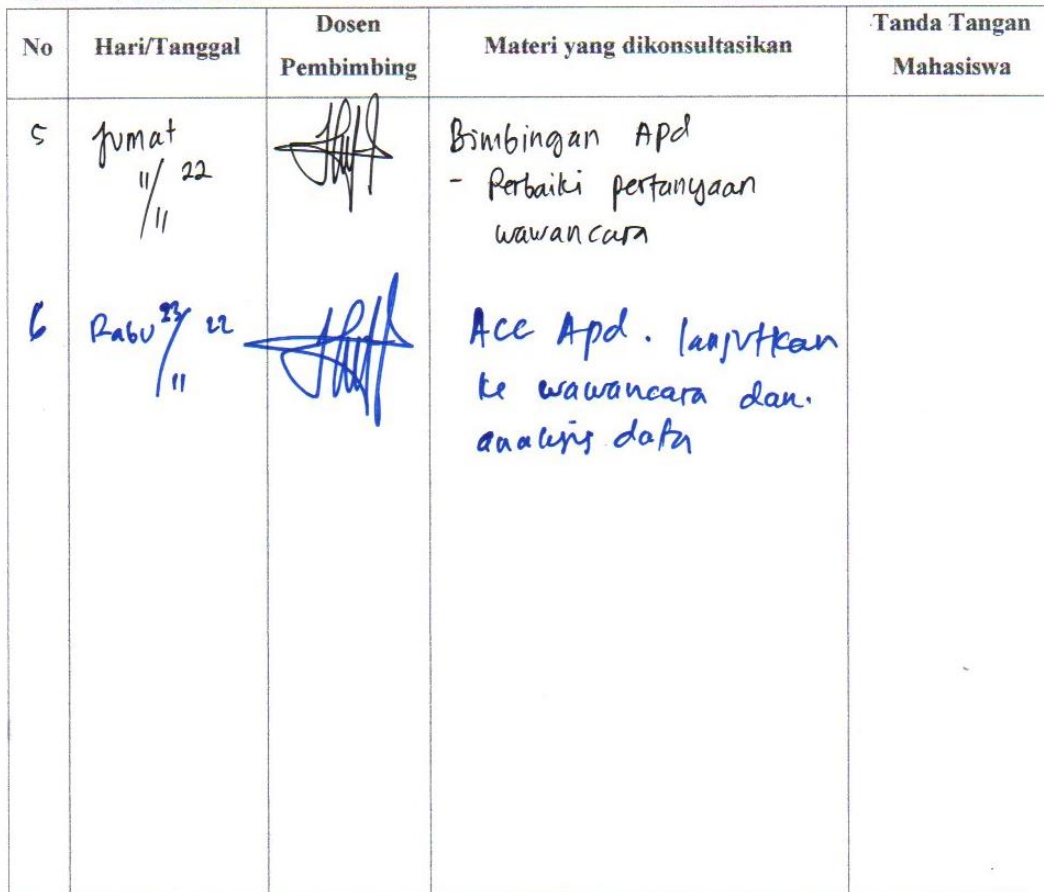 No Hari/Tanggal Dosen Pembimbing Materi yang dikonsultasikan Tanda Tangan Mahasiswa
5 Jumat 11/11 22 Bimbingan Apd
- Perbaiki pertanyaan
wawancara
6 Rabu 23/11 22 Acc Apd. lanjutkan
ke wawancara dan.
analisis data